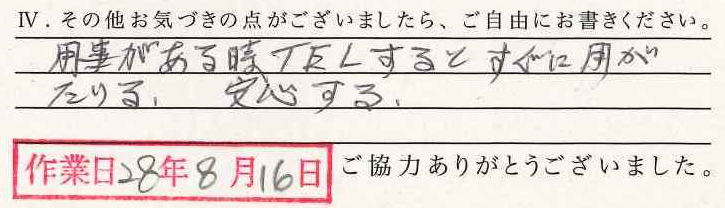 Ⅳ．その他お気づきの点がございましたら、ご自由にお書きください。
用事がある時TELするとすぐに用が
たりる、安心する、
作業日28年8月16日
ご協力ありがとうございました。